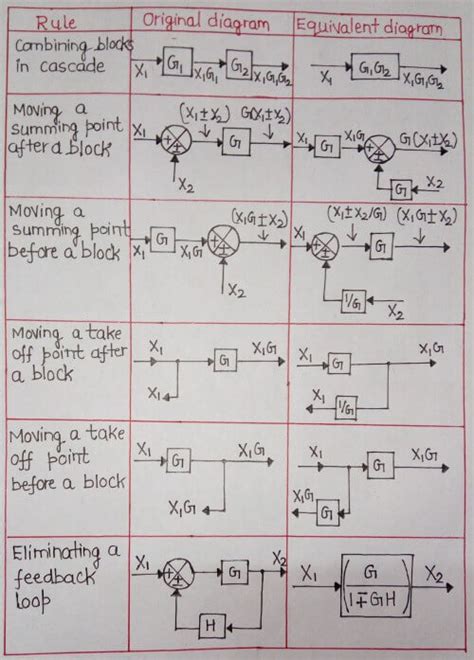 Rule
Original diagram
Equivalent diagram
Combining blocks
in cascade
X₁ G₁ X₁G₁ G₂ X₁G₁G₂
X₁ G₁G₂ X₁G₁G₂
Moving a
summing point
after a block
(X₁±X₂) G(X₁±X₂)
X₁ + ± G
X₂
X₁ G X₁G + ± G(X₁±X₂)
G X₂
Moving a
summing point
before a block
(X₁G±X₂)
X₁ G X₁G + ±
X₂
(X₁±X₂/G) (X₁G±X₂)
X₁ + ± G
1/G X₂
Moving a take
off point after
a block
X₁ G X₁G
X₁
X₁ G X₁G
X₁ 1/G
Moving a take
off point
before a block
X₁ G X₁G
X₁G
X₁ G X₁G
X₁G G
Eliminating a
feedback
loop
X₁ + ± G X₂
H
X₁ (G / 1∓GH) X₂